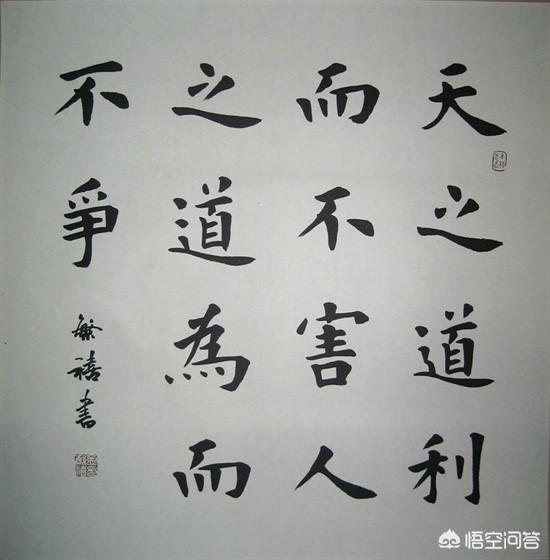 天之道利
而不害人
之道為而
不爭
繁禧書
悟空问答